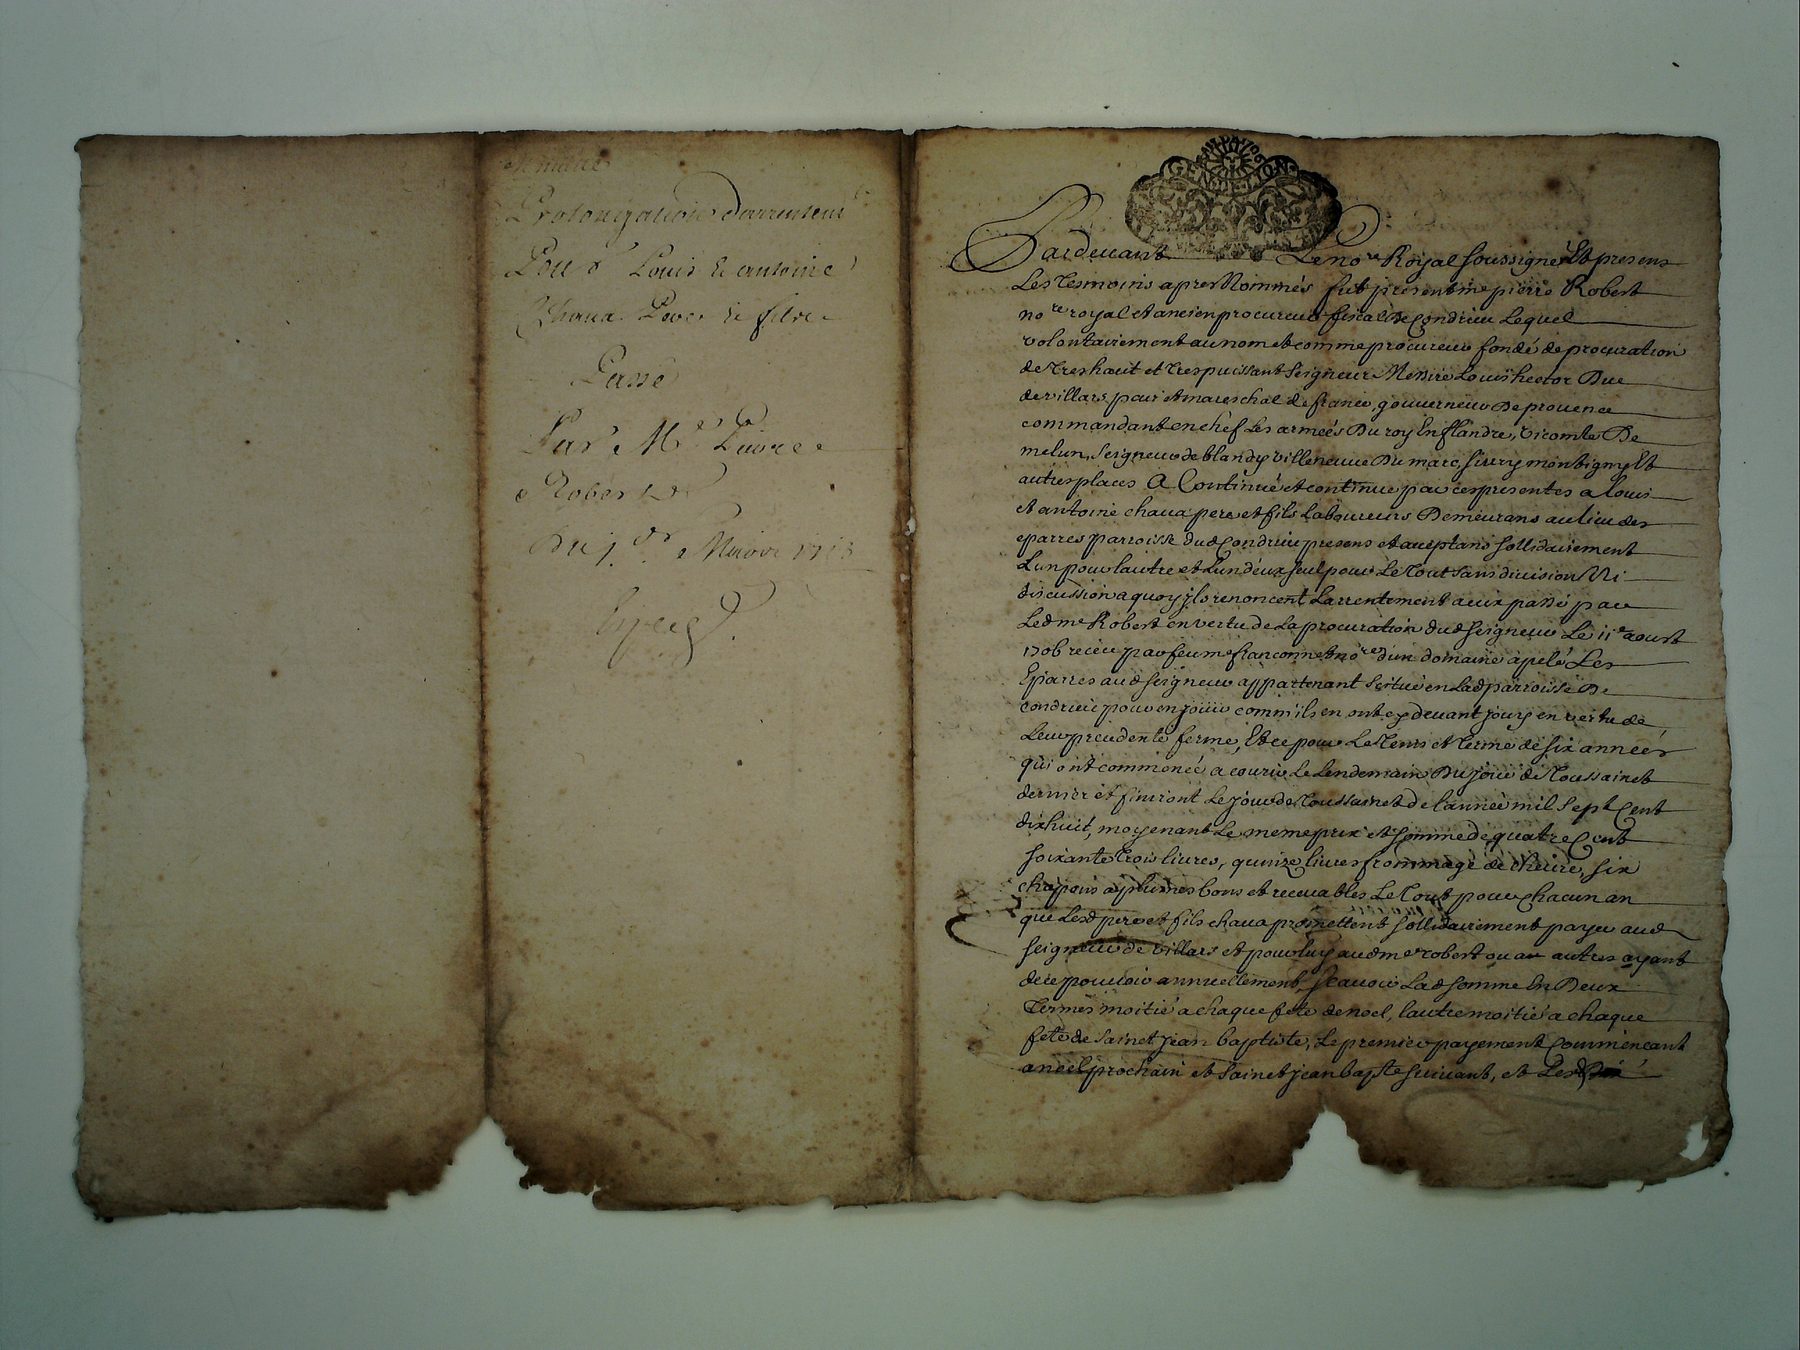 Prolongation darrentemt
Pour Louis & antoine
Chaua Pere & fils
Passé
Par Me Pierre
Robert
Du 1er 1713
GEN DE LION
Pardeuant Le nore Royal soussigné Et presens
Les Tesmoins apres Nommés fut present me pierre Robert
nore royal et ancien procureur fiscal de Condrieu Lequel
volontairement au nom et comme procureur fondé de procuration
de Tres haut et Tres puissant Seigneur Messire Louis hector Duc
de villars pair et mareschal de france, gouuerneur De prouence
commandant en chef Les armeés Du roy En flandre, vicomte De
melun, Seigneur de blandy villeneuue Du marc, siury montigny Et
autres places A Continué et continue par ces presentes a louis
et antoine chaua pere et fils Laboureurs Demeurans au lieu des
eparres parroisse dud Condrieu presens et acceptans sollidairement
Lun pour lautre et Lun d'eux seul pour Le Tout sans diuision Ni
discussion a quoy ils renoncent Larrentement a eux passé par
Led me Robert en vertu de La procuration dud seigneur Le 11e aoust
1706 receu par feu me franconnet nore d'un domaine apelé Les
Eparres aud seigneur appartenant scitué en Lad parroisse De
condrieu pour en jouir comm'ils en ont cy deuant jouy en vertu de
Leur precedente ferme, Et ce pour Le Tems et Terme de six années
qui ont commencé a courir Le Lendemain Du jour de Toussainct
dernier et finiront Le jour de Toussainct de l'année mil sept Cent
dixhuit, moyenant Le meme prix et somme de quatre Cent
soixante Trois liures, quinze liures frommage de cheure, six
chapons a plumes bons et receuables Le Tout pour chacun an
que Lesd pere et fils chaua promettent sollidairement payer aud
seigneur de villars et pour luy aud me robert ou a autres ayant
de ce pouuoir annuellement, scauoir Lad somme En Deux
Termes moitié a chaque fete de noel, lautre moitié a chaque
fete de sainct jean baptiste, Le premier payement Commencant
a noel prochain et sainct jean bapte suiuant, et Lesd